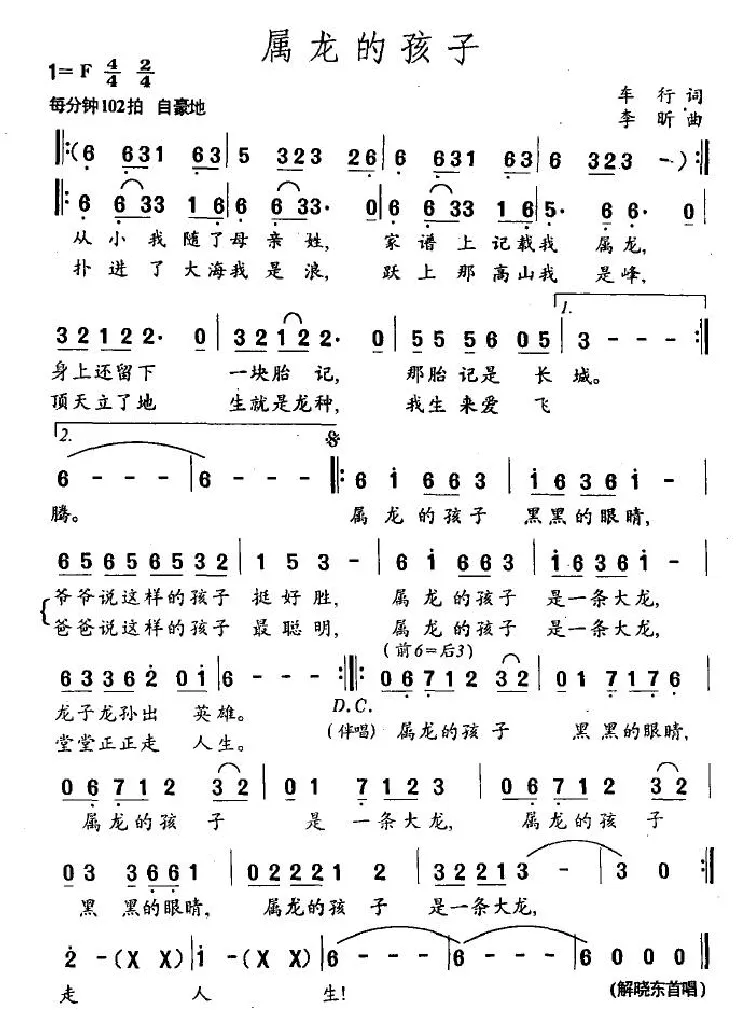 属龙的孩子
1=F 4/4 2/4
每分钟102拍 自豪地
车行词
李昕曲
‖:(6 631 63 | 5 323 26 | 6 631 63 | 6 323 - ):‖
‖:6 633 16 | 6 633· 0 | 6 633 16 | 5· 6 0
从小我随了母亲姓, 家谱上记载我 属龙,
扑进了大海我是浪, 跃上那高山我 是峰,
32122· 0 | 32122· 0 | 55 56 05 | 1. 3 - - - :‖
身上还留下 一块胎记, 那胎记是 长城。
顶天立了地 生就是龙种, 我生来爱 飞
2.
6 - - - | 6 - - - ‖:6 i 663 | i636i -
腾。 属龙的孩子 黑黑的眼睛,
65656532 | 1 5 3 - | 6 i 663 | i636i -
爷爷说这样的孩子 挺好胜, 属龙的孩子 是一条大龙,
爸爸说这样的孩子 最聪明, 属龙的孩子 是一条大龙,
(前6=后3)
63362 0i | 6 - - :‖: 06712 32 | 01 7176
龙子龙孙出 英雄。 D.C. (伴唱) 属龙的孩子 黑黑的眼睛,
堂堂正正走 人生。
06712 32 | 01 7123 | 06712 32
属龙的孩子 是一条大龙, 属龙的孩子
03 3661 | 02221 02 | 32213 - | 3 0 :‖
黑黑的眼睛, 属龙的孩子 是一条大龙,
2 - (X X) | i - (X X) | 6 - - - | 6 - - - | 6 0 0 0 ‖
走 人 生!
(解晓东首唱)